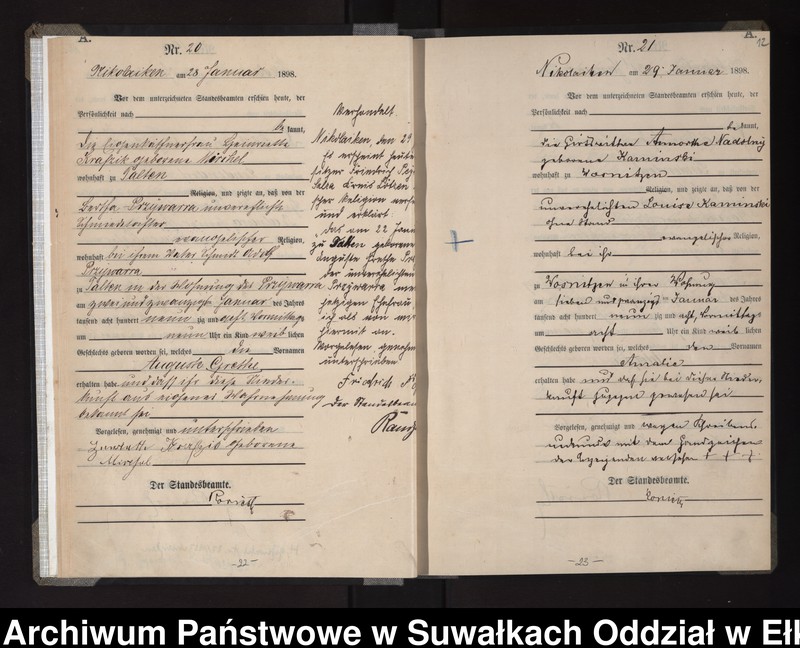 A.
Nr. 20
Nikolaiken am 23 Januar 1898.
Vor dem unterzeichneten Standesbeamten erschien heute, der
Persönlichkeit nach
be kannt,
die Eigenkäthnerfrau Henriette
geborene
wohnhaft zu Salten
Religion, und zeigte an, daß von der
Bertha Przywarra unverehelichte
Schmiedetochter
evangelischer Religion,
wohnhaft bei ihrem Vater Schmidt Adolf
Przywarra
zu Salten in der Wohnung des Przywarra
am zwei und zwanzigsten Januar des Jahres
tausend acht hundert neun zig und acht Vormittags
um neun Uhr ein Kind weib lichen
Geschlechts geboren worden sei, welches die Vornamen
Auguste Grethe
erhalten habe und daß ihr diese Nieder-
kunft aus eigener Wahrnehmung
bekannt sei
Vorgelesen, genehmigt und unterschrieben
geborene
Der Standesbeamte.
-22-
Verhandelt
Nikolaiken, den 29
Es erscheint heute
sitzer Friedrich
Kreis Lötzen
scher Religion
und erklärt
das am 22 Janu
zu Salten geborene
Auguste Grethe
der unverehelichten
Przywarra
jetzigen Ehefrau
ich als von mir
hiermit an.
Vorgelesen genehm
unterschrieben
Der Standesbeam
A.
12
Nr. 21
Nikolaiken am 29 Januar 1898.
Vor dem unterzeichneten Standesbeamten erschien heute, der
Persönlichkeit nach
be kannt,
die Nadolny
geborene Kaminski
wohnhaft zu Wosnitzen
Religion, und zeigte an, daß von der
unverehelichten Louise Kaminski
ohne Stand
evangelischer Religion,
wohnhaft bei ihr
zu Wosnitzen in ihrer Wohnung
am sieben und zwanzigst Januar des Jahres
tausend acht hundert neun zig und acht, Vormittags
um acht Uhr ein Kind weib lichen
Geschlechts geboren worden sei, welches den Vornamen
Amalie
erhalten habe und daß sie bei dieser Nieder-
kunft zugegen gewesen sei
Vorgelesen, genehmigt und wegen Schreibens-
unkunde mit dem Handzeichen
der Anzeigenden versehen + + +
Der Standesbeamte.
-23-
Archiwum Państwowe w Suwałkach Oddział w Ełk